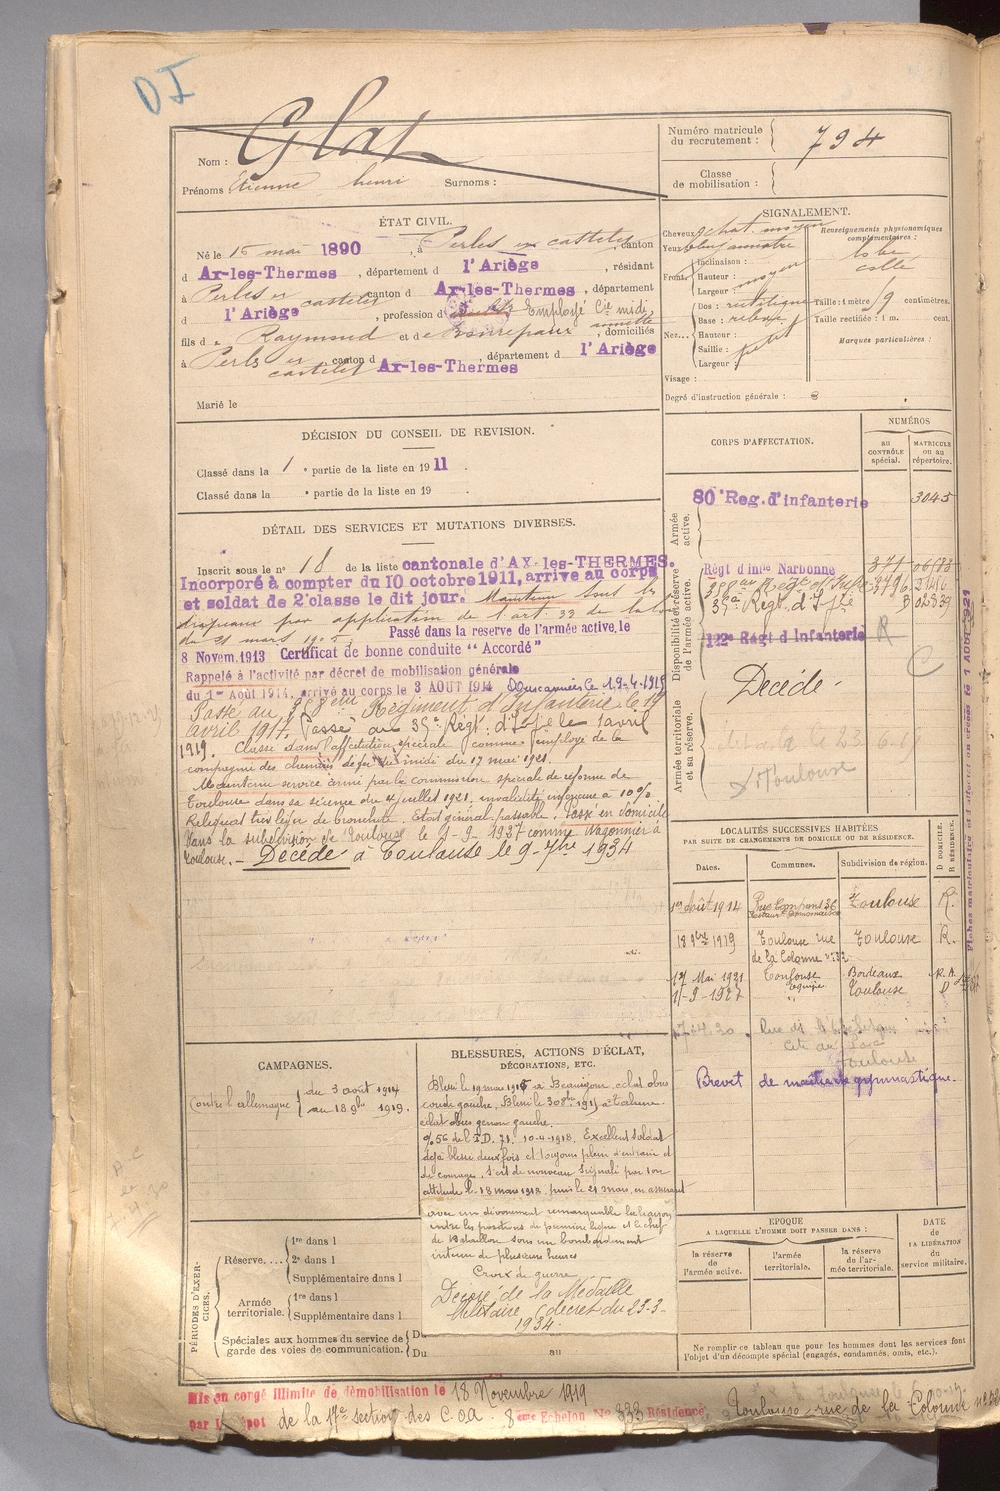 DI
Nom : Glat
Prénoms Etienne henri Surnoms :
Numéro matricule du recrutement : 794
Classe de mobilisation :
ÉTAT CIVIL.
Né le 15 mai 1890, à Perles et castelet, canton
d Ax-les-Thermes, département d l'Ariège, résidant
à Perles et castelet canton d Ax-les-Thermes, département
d l'Ariège, profession d Employé Cie midi
fils de Raymond et de Bonrepaux annette, domiciliés
à Perles et castelet canton d Ax-les-Thermes, département d l'Ariège
Marié le
SIGNALEMENT.
Cheveux chat. moyen
Yeux
Front Inclinaison :
Hauteur : moyen
Largeur
Nez... Dos : rectiligne
Base : relevé
Hauteur :
Saillie : petit
Largeur :
Visage :
Degré d'instruction générale : 3
Renseignements physionomiques complémentaires :
lobe
collé
Taille : 1 mètre centimètres.
Taille rectifiée : 1 m. cent.
Marques particulières :
DÉCISION DU CONSEIL DE REVISION.
Classé dans la 1e partie de la liste en 1911.
Classé dans la e partie de la liste en 19 .
DÉTAIL DES SERVICES ET MUTATIONS DIVERSES.
Inscrit sous le no 18 de la liste cantonale d'AX-les-THERMES.
Incorporé à compter du 10 octobre 1911, arrivé au corps
et soldat de 2e classe le dit jour. Maintenu sous les
drapeaux par application de l'art. 33 de la loi
du 21 mars 1905. Passé dans la reserve de l'armée active, le
8 Novem. 1913 Certificat de bonne conduite "Accordé"
Rappelé à l'activité par décret de mobilisation générale
du 1er Août 1914, arrivé au corps le 3 AOUT 1914
Passé au Régiment d'Infanterie le 19
avril 1917. Passé au 35e Régt d'Ife le 1 avril
1919. Classé dans l'affectation spéciale comme employé de la
compagnie des chemins de fer du midi du 17 mai 1921.
Maintenu service armé par la commission spéciale de réforme de
Toulouse dans sa séance du 4 juillet 1921, invalidité inférieure à 10%.
Reliquat très léger de bronchite. Etat général passable. Passé en domicile
dans la subdivision de Toulouse le 1-9-1927 comme wagonnier à
Toulouse. - Décédé à Toulouse le 9-7bre 1934
CORPS D'AFFECTATION.
NUMÉROS
au CONTRÔLE spécial.
MATRICULE ou au répertoire.
Armée active.
80e Reg. d'infanterie 3045
Disponibilité et réserve de l'armée active.
Régt d'infie Narbonne 371
35e Régt. d'Ife
112e Régt d'Infanterie R
C
Décédé -
Armée territoriale et sa réserve.
Toulouse
LOCALITÉS SUCCESSIVES HABITÉES
PAR SUITE DE CHANGEMENTS DE DOMICILE OU DE RÉSIDENCE.
Dates. Communes. Subdivision de région. D DOMICILE. R RÉSIDENCE.
1er Août 1914 Toulouse R.
18 9bre 1919 Toulouse rue de la Colonne no 32 Toulouse R.
17 Mai 1921 Toulouse Bordeaux R.A.
1-9-1927 Toulouse
Toulouse
Brevet de gymnastique.
CAMPAGNES.
Contre l'allemagne du 3 août 1914
au 18 9bre 1919.
BLESSURES, ACTIONS D'ÉCLAT,
DÉCORATIONS, ETC.
Blessé le 19 mai 1915 à Beauséjour, éclat obus
coude gauche. Blessé le 30 8bre 1915 à Tahure
éclat obus genou gauche.
O/56 de l'I.D. 71. 10-4-1918. Excellent soldat
déjà blessé deux fois et toujours plein d'entrain et
de courage, s'est de nouveau signalé par son
attitude le 18 mars 1918 puis le 21 mars, en assurant
avec un dévouement remarquable la liaison
entre les positions de première ligne et le chef
de Bataillon sous un bombardement
intense de plusieurs heures
Croix de guerre
Décoré de la Médaille
Militaire (décret du 23-3-
1934.
PÉRIODES D'EXERCICES.
Réserve.... 1re dans l
2e dans l
Supplémentaire dans l
Armée territoriale. 1re dans l
Supplémentaire dans l
Spéciales aux hommes du service de garde des voies de communication. Du
Du au
EPOQUE
A LAQUELLE L'HOMME DOIT PASSER DANS :
la réserve de l'armée active.
l'armée territoriale.
la réserve de l'armée territoriale.
DATE de LA LIBÉRATION du service militaire.
Ne remplir ce tableau que pour les hommes dont les services font
l'objet d'un décompte spécial (engagés, condamnés, omis, etc.).
Mis en congé illimité de démobilisation le 18 Novembre 1919
par le Dépot de la 17e section des C.O.A. 8ème Echelon No 333 Résidence Toulouse rue de la Colonne